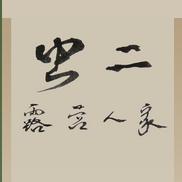 虫二
露营人家